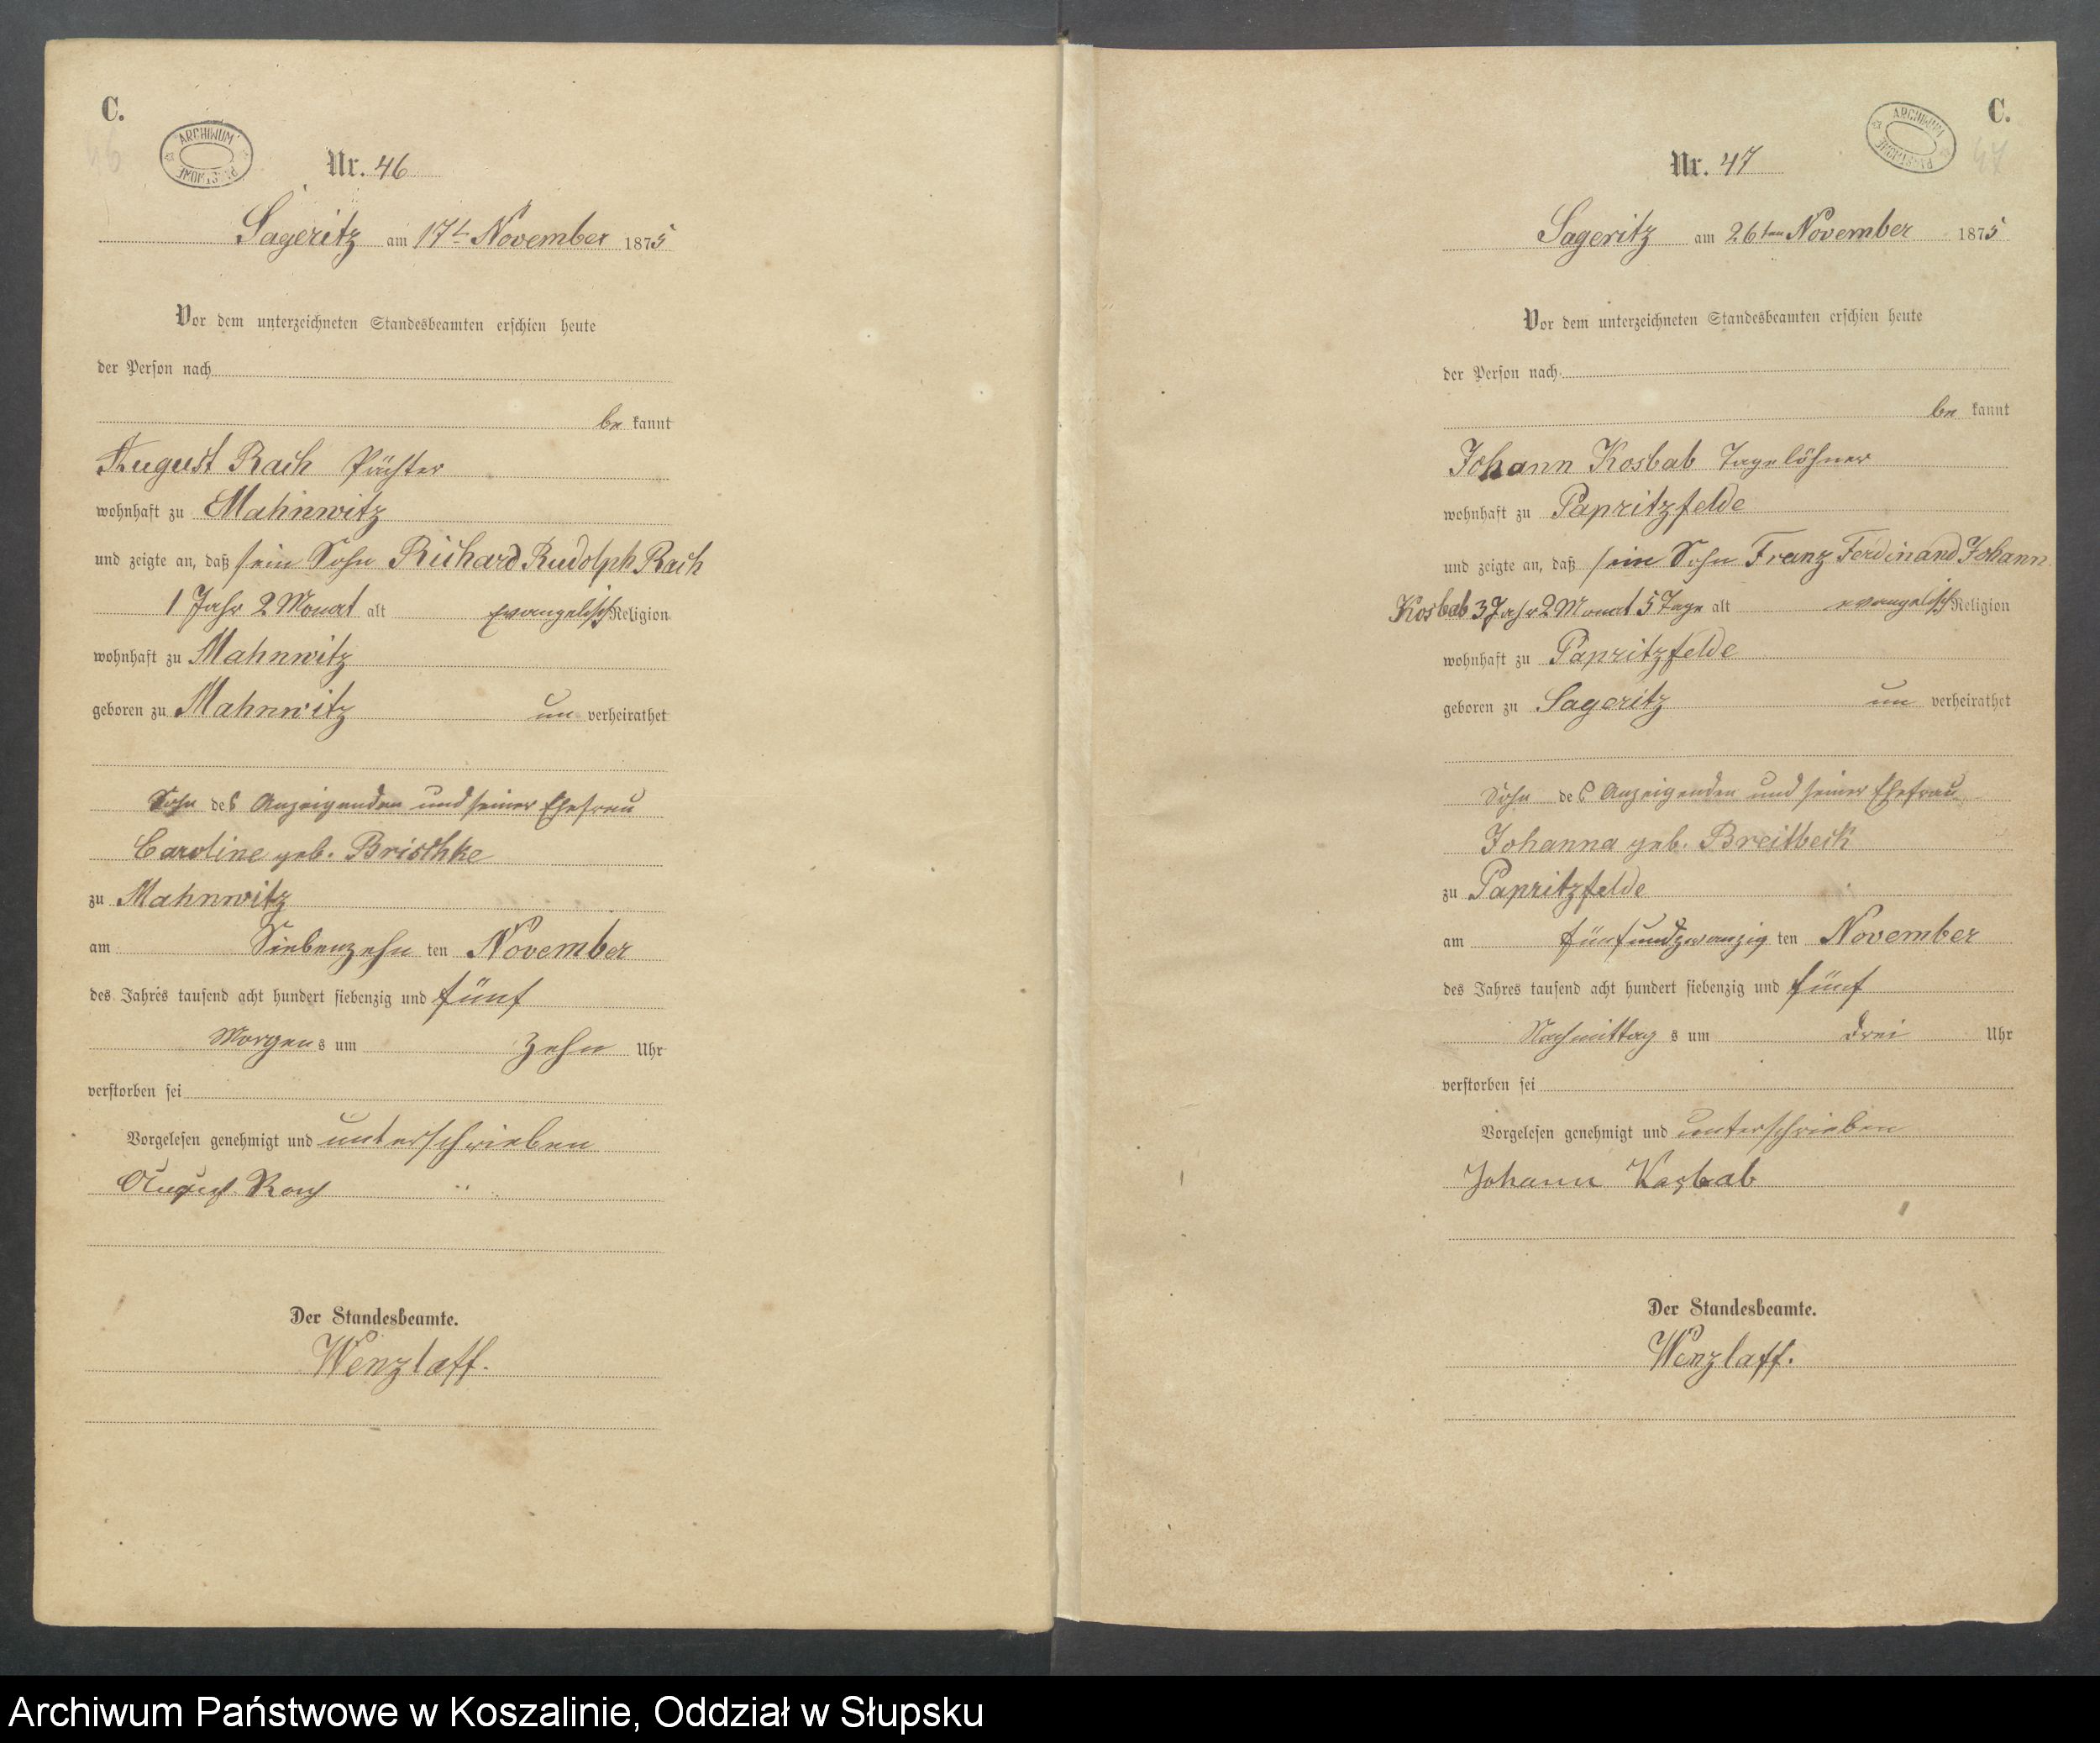 C.
ARCHIWUM PAŃSTWOWE
46
Nr. 46
Sageritz am 17t November 1875
Vor dem unterzeichneten Standesbeamten erschien heute
der Person nach
be kannt
August Rach Pächter
wohnhaft zu Mahnwitz
und zeigte an, daß sein Sohn Richard Rudolph Rach
1 Jahr 2 Monat alt evangelisch Religion
wohnhaft zu Mahnwitz
geboren zu Mahnwitz un verheirathet
Sohn des Anzeigenden und seiner Ehefrau
Caroline geb. Brischke
zu Mahnwitz
am Siebenzehn ten November
des Jahres tausend acht hundert siebenzig und fünf
Morgen s um Zehn Uhr
verstorben sei
Vorgelesen genehmigt und unterschrieben
August Rach
Der Standesbeamte.
Wenzlaff.
C.
ARCHIWUM PAŃSTWOWE
47
Nr. 47
Sageritz am 26ten November 1875
Vor dem unterzeichneten Standesbeamten erschien heute
der Person nach
be kannt
Johann Kosbab Tagelöhner
wohnhaft zu Papritzfelde
und zeigte an, daß sein Sohn Franz Ferdinand Johann
Kosbab 3 Jahr 2 Monat 5 Tage alt evangelisch Religion
wohnhaft zu Papritzfelde
geboren zu Sageritz un verheirathet
Sohn des Anzeigenden und seiner Ehefrau
Johanna geb. Breitbeck
zu Papritzfelde
am fünfundzwanzig ten November
des Jahres tausend acht hundert siebenzig und fünf
Nachmittag s um drei Uhr
verstorben sei
Vorgelesen genehmigt und unterschrieben
Johann Kosbab
Der Standesbeamte.
Wenzlaff.
Archiwum Państwowe w Koszalinie, Oddział w Słupsku